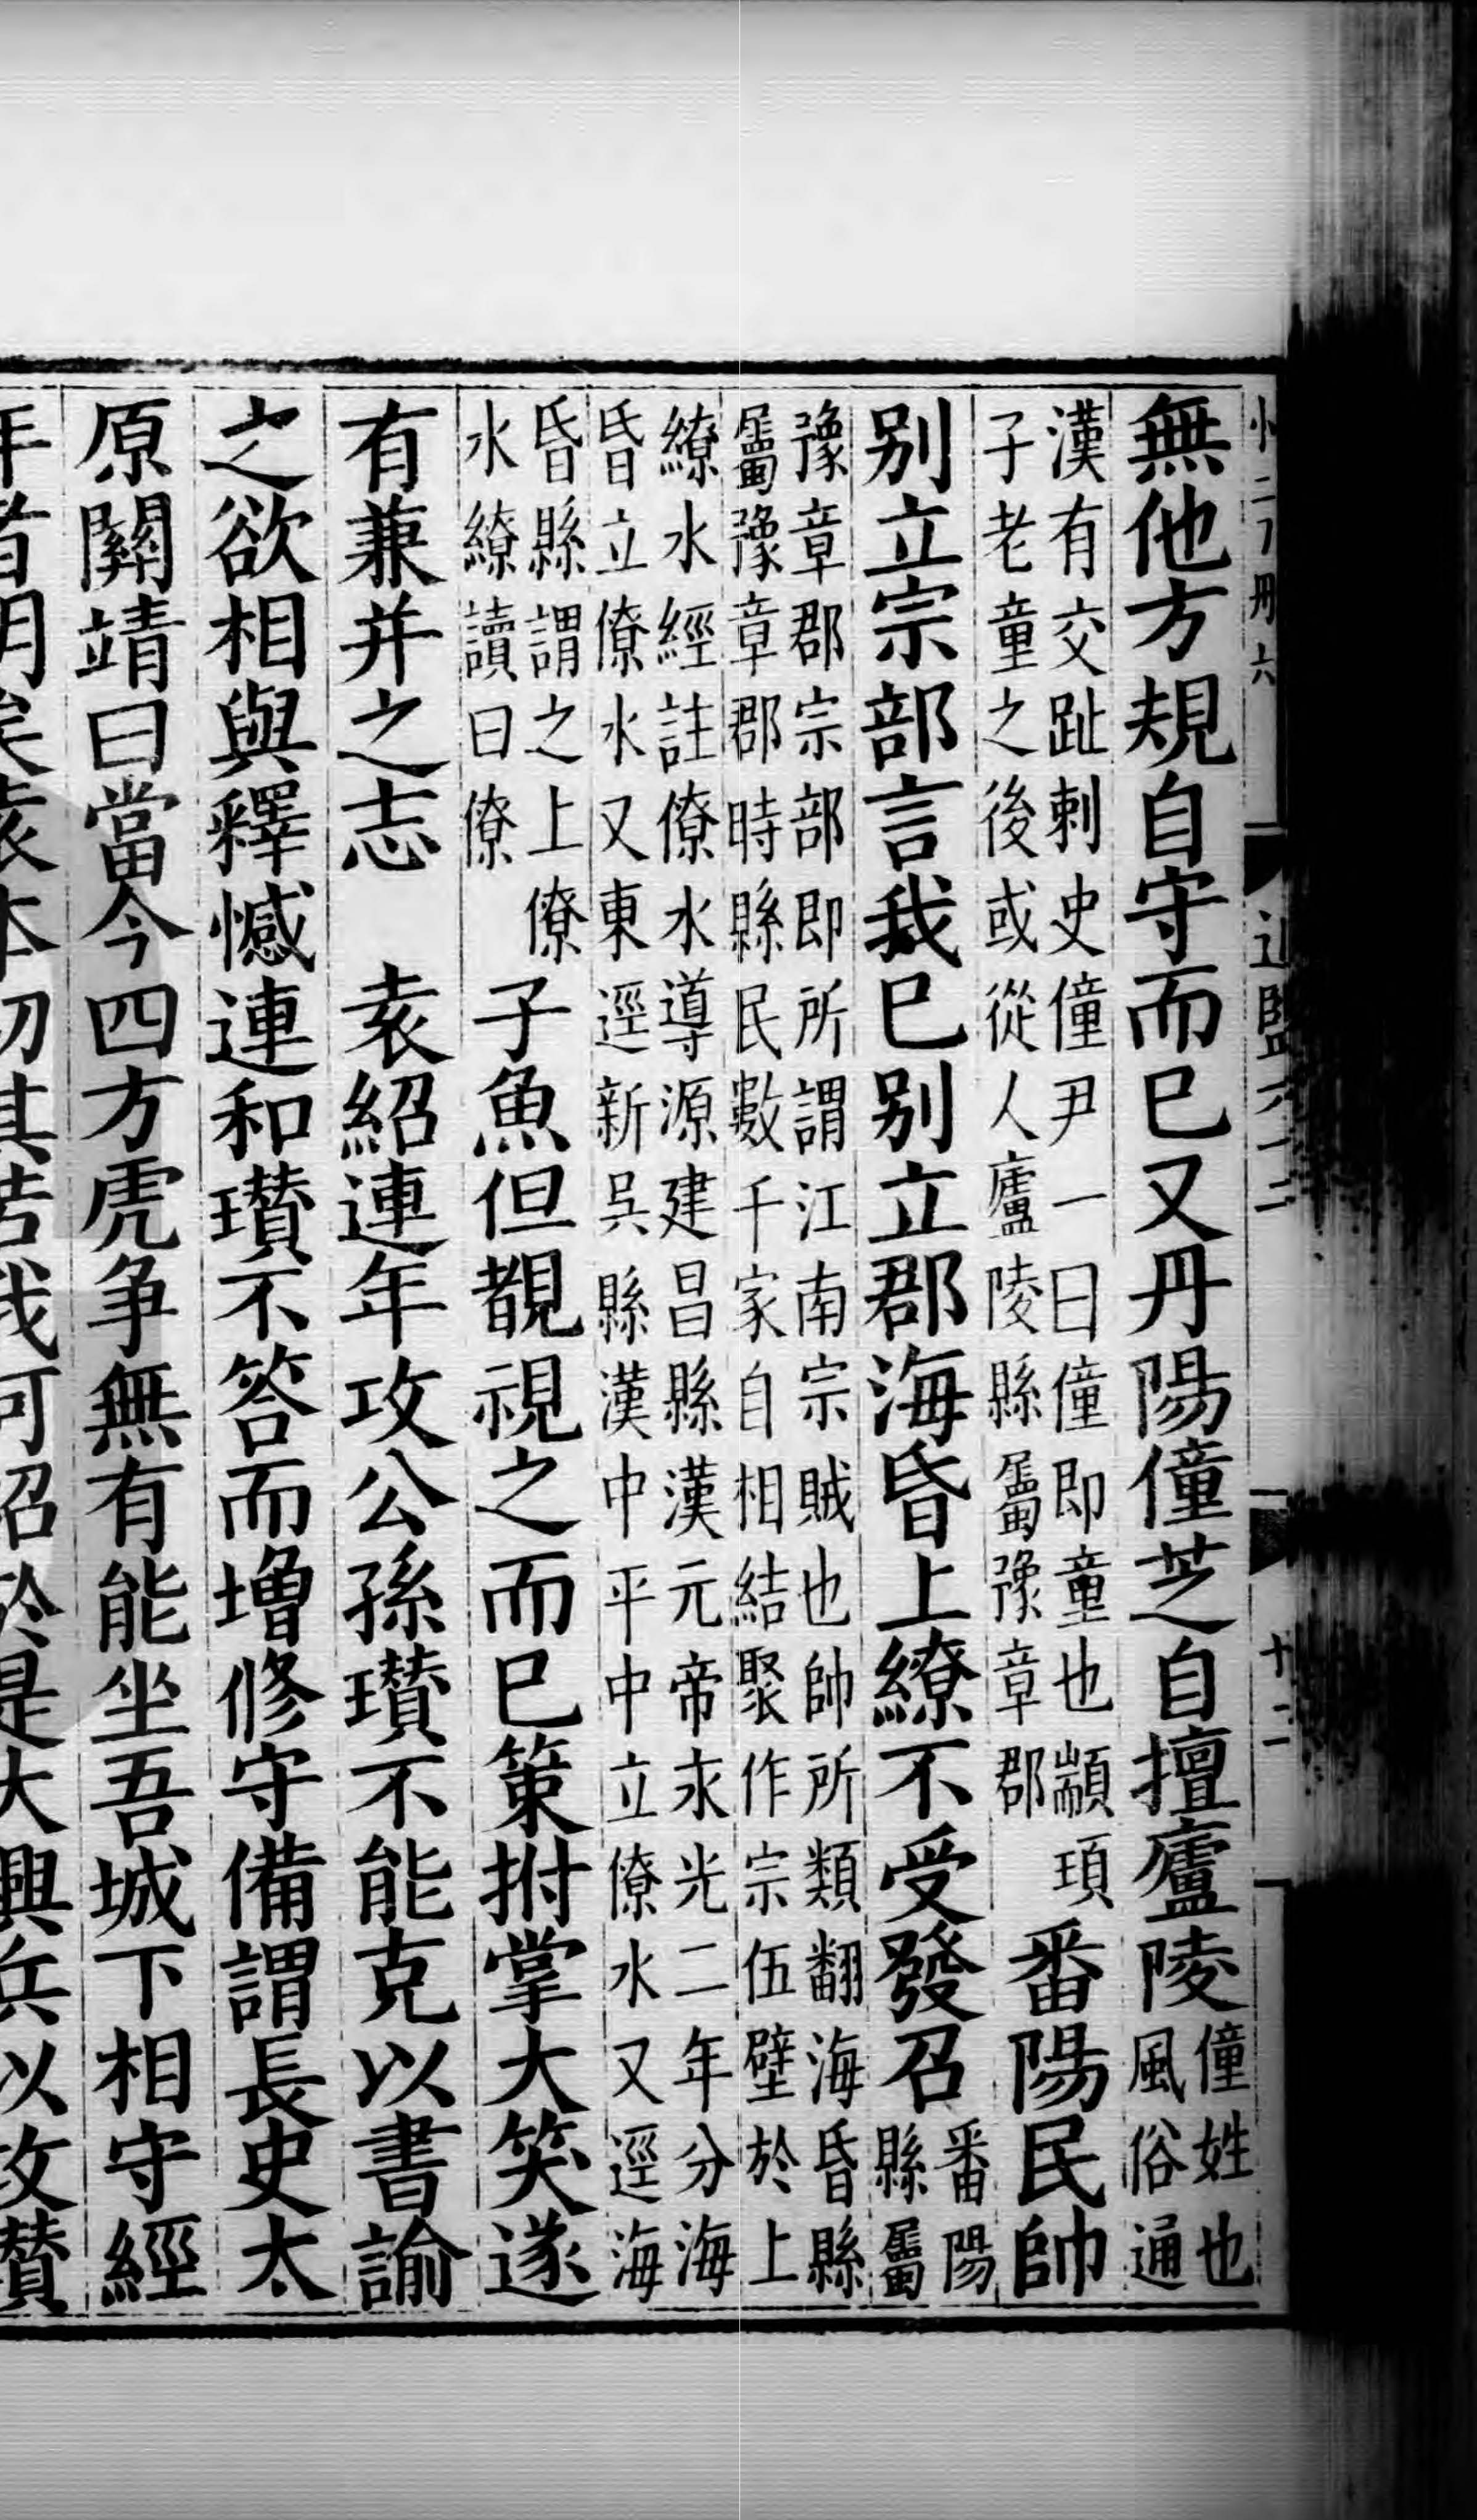 十二
無他方規自守而巳又丹陽僮芝自擅廬陵僮姓也風俗通
漢有交趾刺史僮尹一曰僮即童也顓頊子老童之後或從人廬陵縣屬豫章郡番陽民帥
别立宗部言我巳别立郡海昏上繚不受發召番陽縣屬
豫章郡宗部即所謂江南宗賊也帥所類翻海昏縣屬豫章郡時縣民數千家自相結聚作宗伍壁於上
繚水經註僚水導源建昌縣漢元帝求光二年分海昏立僚水又東逕新吳縣漢中平中立僚水又逕海
昏縣謂之上僚水繚讀曰僚子魚但覩視之而巳策拊掌大笑遂
有兼并之志 袁紹連年攻公孫瓚不能克以書諭
之欲相與釋憾連和瓚不答而增修守備謂長史太
原關靖曰當今四方虎爭無有能坐吾城下相守經
年者明矣袁本初其若我何紹於是大興兵以攻瓚